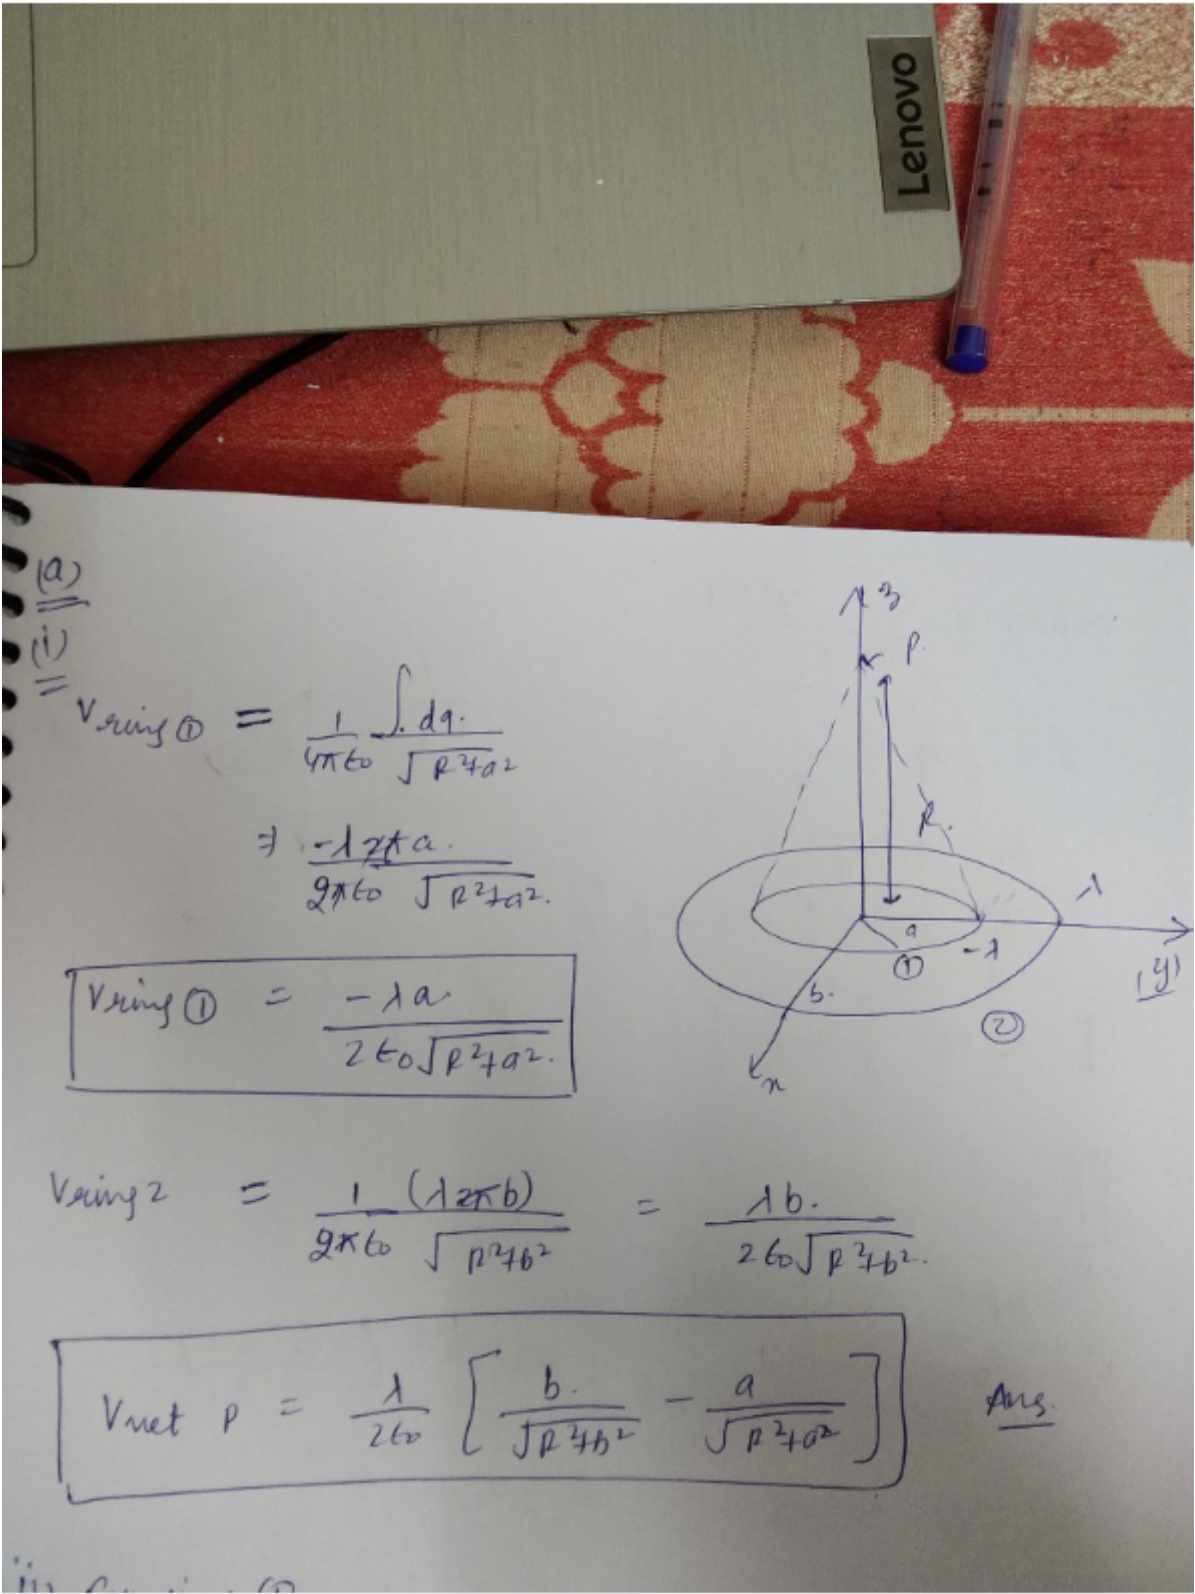 Lenovo
(a)
(i)
V ring ① = 1/4πϵ0 ∫ dq. / √R²+a²
⇒ -λ2πa. / 2πϵ0 √R²+a².
V ring ① = -λa. / 2ϵ0√R²+a².
z
P.
R.
λ
a
-λ
①
(y)
b.
②
x
V ring 2 = 1/2πϵ0 (λ2πb) / √R²+b² = λb. / 2ϵ0√R²+b².
V net P = λ/2ϵ0 [ b. / √R²+b² - a / √R²+a² ] Ans.